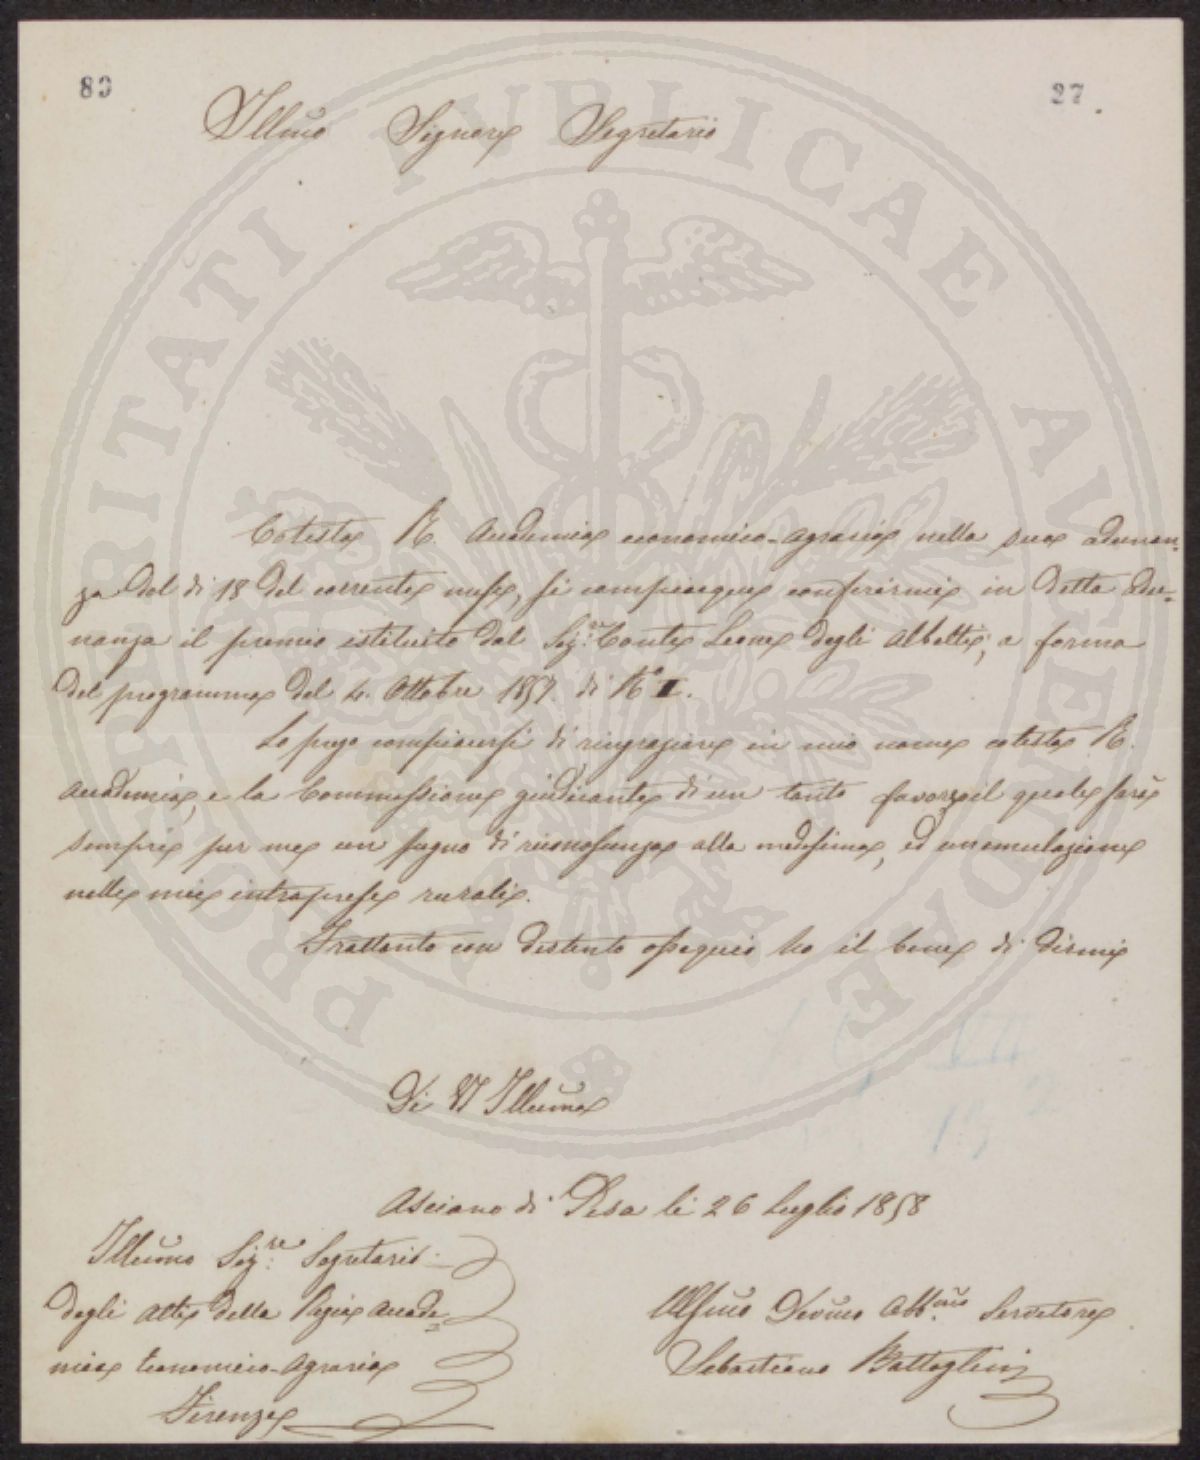 80
27
Illmo Signore Segretario
Cotesta R. Accademia economico-agraria nella sua adunan-
za del dì 18 del corrente mese, si compiacque conferirmi in detta adu-
nanza il premio istituito dal Sigr. Conte Leone degli Albetti, a forma
del programma del 4. Ottobre 1857. di N.º I.
La prego compiacersi di ringraziare in mio nome cotesta R.
Accademia, e la Commissione giudicante di un tanto favore, il quale sarà
sempre per me un pegno di riconoscenza alla medesima, ed un emulazione
nelle mie intraprese rurali.
Frattanto con distinto ossequio ho il bene di dirmi
Di VS Illuma
Asciano di Pisa li 26 Luglio 1858
Illumo Sigre. Segretario
degli Atti della Regia Accade-
mia Economico-Agraria
Firenze
Ussmo Devmo Obbmo. Servitore
Sebastiano Battaglini
PROSPERITATI PVBLICAE AVGENDAE